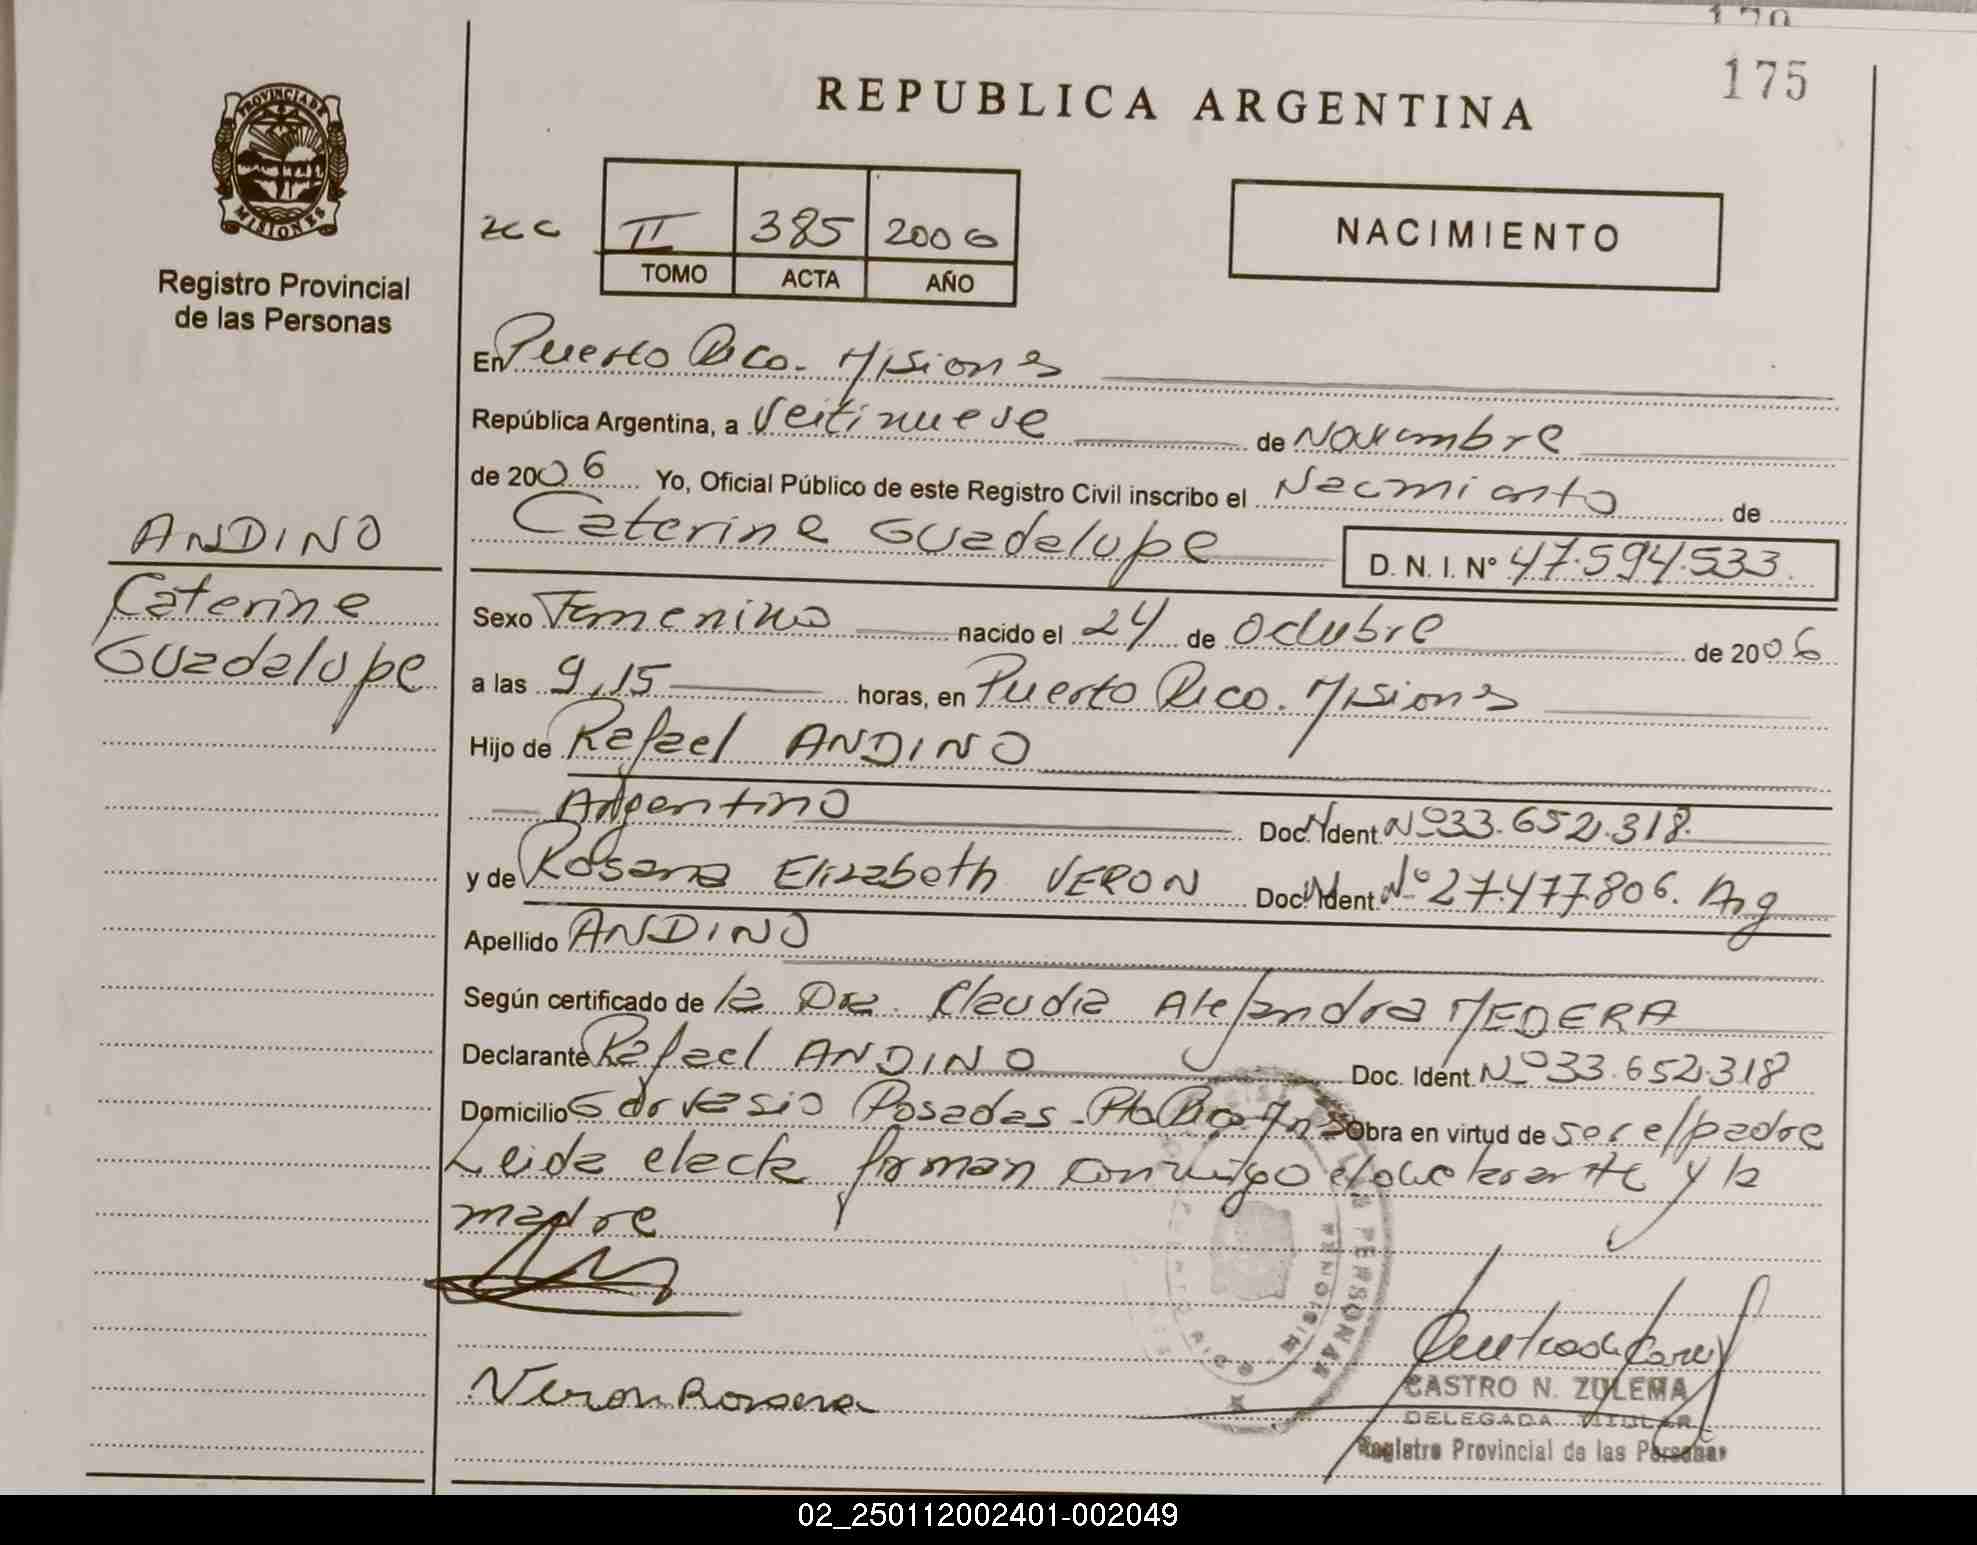 175
REPUBLICA ARGENTINA
PROVINCIA DE
MISIONES
Registro Provincial
de las Personas
II 385 2006
TOMO ACTA AÑO
NACIMIENTO
En Puerto Rico. Misiones
República Argentina, a Veitinueve de Noviembre
de 2006 Yo, Oficial Público de este Registro Civil inscribo el Nacimiento de
Caterine Guadalupe D. N. I. N° 47.594.533
ANDINO
Caterine
Guadalupe
Sexo Femenino nacido el 24 de Octubre de 2006
a las 9,15 horas, en Puerto Rico. Misiones
Hijo de Rafael ANDINO
Argentino Doc. Ident. N° 33.652.318
y de Rosana Elizabeth VERON Doc. Ident. N° 27.477.806. Arg
Apellido ANDINO
Según certificado de la Dra. Claudia Alejandra MEDERA
Declarante Rafael ANDINO Doc. Ident. N° 33.652.318
Domicilio Gervasio Posadas - Pto Rico Mnes Obra en virtud de ser el padre
Leida el acta firman conmigo el declarante y la
madre
Veron Rosana
CASTRO N. ZULEMA
DELEGADA TITULAR
Registro Provincial de las Personas
02_250112002401-002049